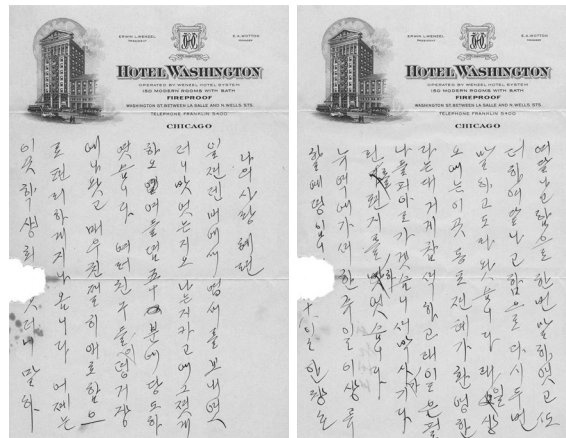 ERWIN L.WENZEL
PRESIDENT
HOTEL WASHINGTON
OPERATED BY WENZEL HOTEL SYSTEM
150 MODERN ROOMS WITH BATH
FIREPROOF
WASHINGTON ST. BETWEEN LA SALLE AND N. WELLS STS.
TELEPHONE FRANKLIN 5400
CHICAGO
나의사랑혜련
일젼덴버에서 엽서를 보내엿
더니 밧엇는지요 나는지카고에그젹게
하오 여들덤 분에 당도하
엿슴니다 여러친구들이뎡거쟝
에나왓고 매우친졀히 애호함으
로 편리하게지나옵니다 어제는
이곳학생회 더니 말하
ERWIN L.WENZEL
PRESIDENT
HOTEL WASHINGTON
OPERATED BY WENZEL HOTEL SYSTEM
150 MODERN ROOMS WITH BATH
FIREPROOF
WASHINGTON ST. BETWEEN LA SALLE AND N. WELLS STS.
TELEPHONE FRANKLIN 5400
CHICAGO
여달나고함으로 한번말하엿고 또
더하여달나고함으로 다시두번
말하고도라왓습니다 래일
오에는이곳 동포젼톄가 환영한
다는대거게참석 하고래일은필
나들피아로가겟습니
편지를 밧엇습니다
뉴욕에가서한주일이상류
할예뎡임 안창호